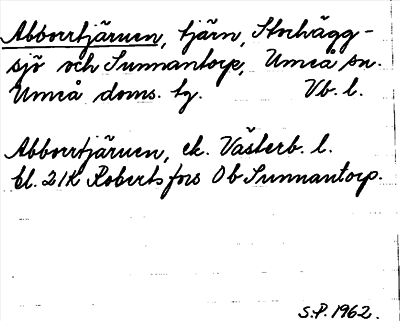 Abborrtjärnen, tjärn, Storhägg-
sjö och Sunnantorp, Umeå sn.
Umeå doms. tg. Vb. l.
Abborrtjärnen, ek. Västerb. l.
bl. 21K Robertsfors Ob Sunnantorp.
S.P. 1962.